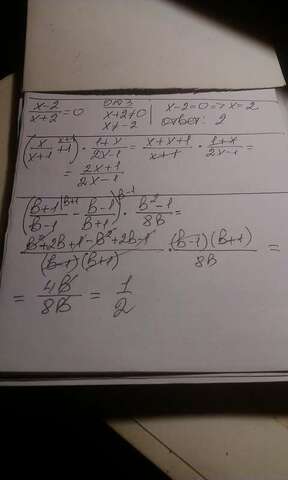 x-2/x+2 = 0 ОДЗ x-2=0 => x=2
x+2≠0
x≠-2 ответ: 2
(x/x+1 + 1^x+1) · 1+x/2x-1 = x+x+1/x+1 · 1+x/2x-1 =
= 2x+1/2x-1
(b+1/b-1^b+1 - b-1/b+1^b-1) · b²-1/8b =
b²+2b+1-b²+2b-1/(b-1)(b+1) · (b-1)(b+1)/8b =
= 4b/8b = 1/2